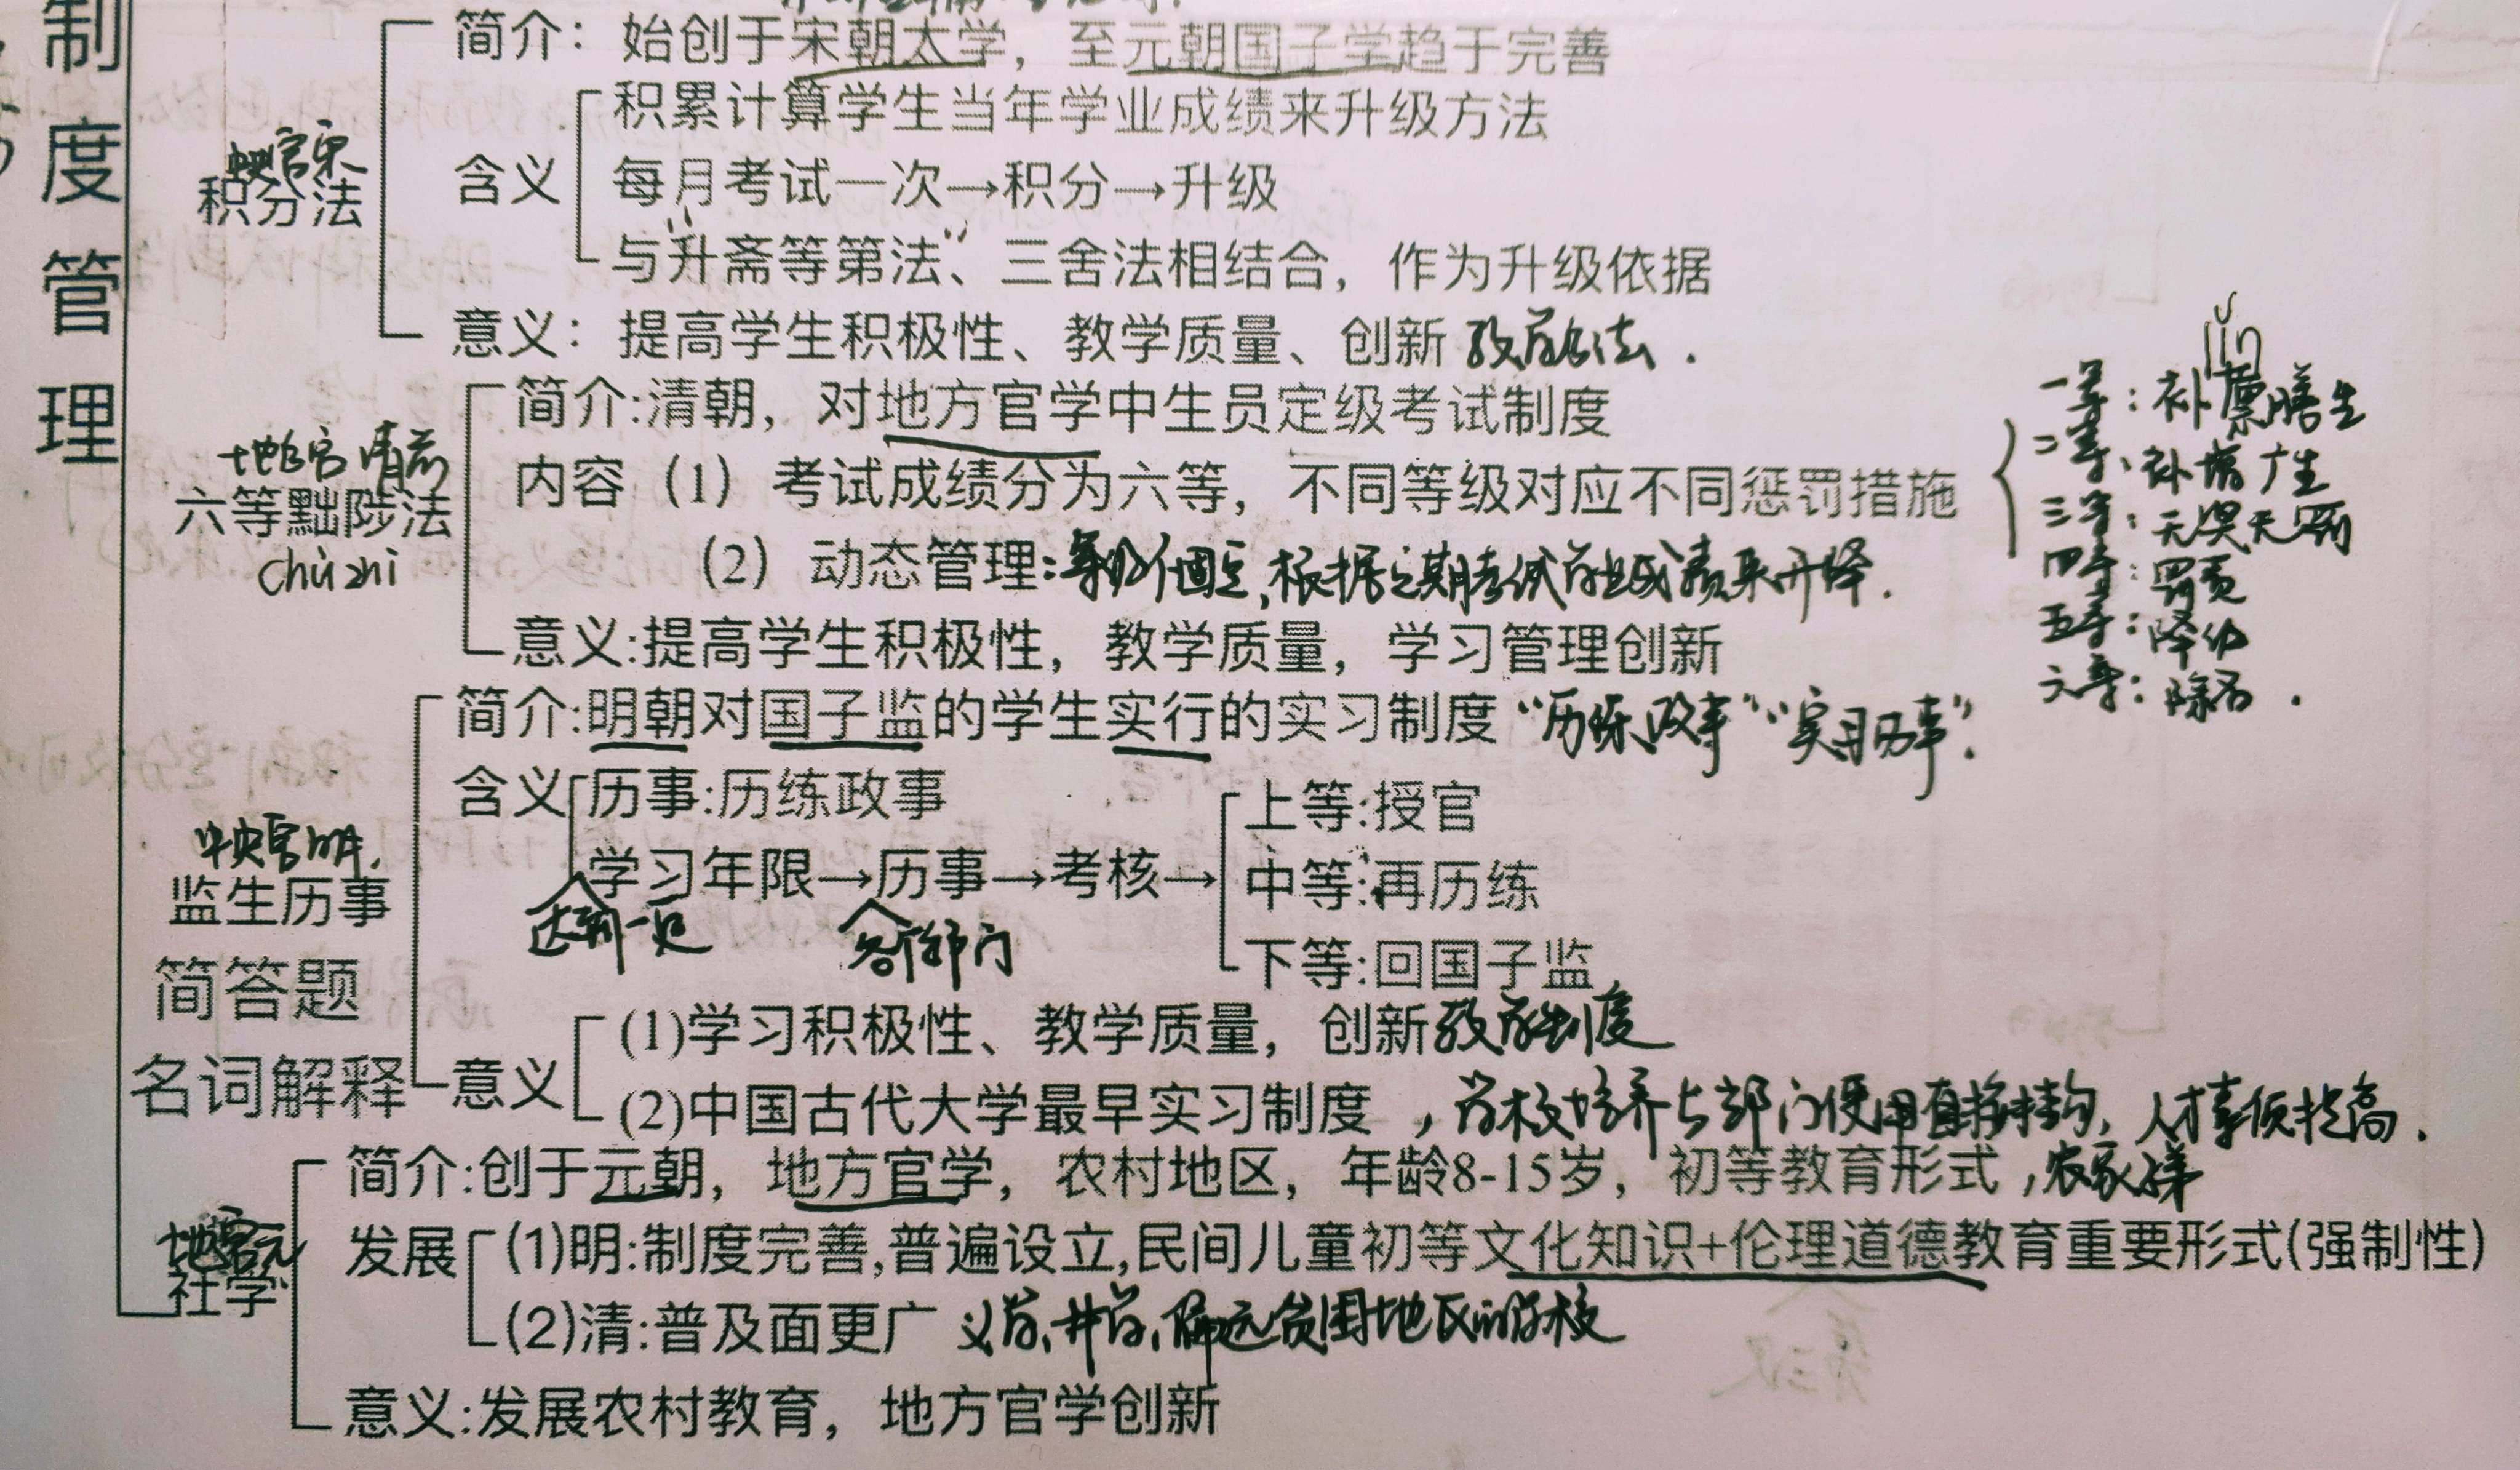 制度管理
简介：始创于宋朝太学，至元朝国子学趋于完善
积累计算学生当年学业成绩来升级方法
央官宋
积分法
含义
每月考试一次→积分→升级
与"升斋等第法"、三舍法相结合，作为升级依据
意义：提高学生积极性、教学质量、创新 教育方法.
lǐn
简介:清朝，对地方官学中生员定级考试制度
一等：补廪膳生
地方官 清前
六等黜陟法
chù zhì
内容（1）考试成绩分为六等，不同等级对应不同惩罚措施
二等、补增广生
三等：无奖无罚
（2）动态管理:等级不固定，根据定期考试的成绩来升降.
四等：罚责
五等：降级
意义:提高学生积极性，教学质量，学习管理创新
六等：除名.
简介:明朝对国子监的学生实行的实习制度"历练政事""实习历事".
含义
历事:历练政事
上等:授官
中央官明.
监生历事
学习年限→历事→考核→
中等:再历练
达到一定
各个部门
下等:回国子监
简答题
名词解释
(1)学习积极性、教学质量，创新教育制度
意义
(2)中国古代大学最早实习制度，学校培养与部门使用直接挂钩，人才素质提高.
简介:创于元朝，地方官学，农村地区，年龄8-15岁，初等教育形式，农家子弟
地官元
社学
发展
(1)明:制度完善,普遍设立,民间儿童初等文化知识+伦理道德教育重要形式(强制性)
(2)清:普及面更广 义学、井学、偏远贫困地区的学校
意义:发展农村教育，地方官学创新